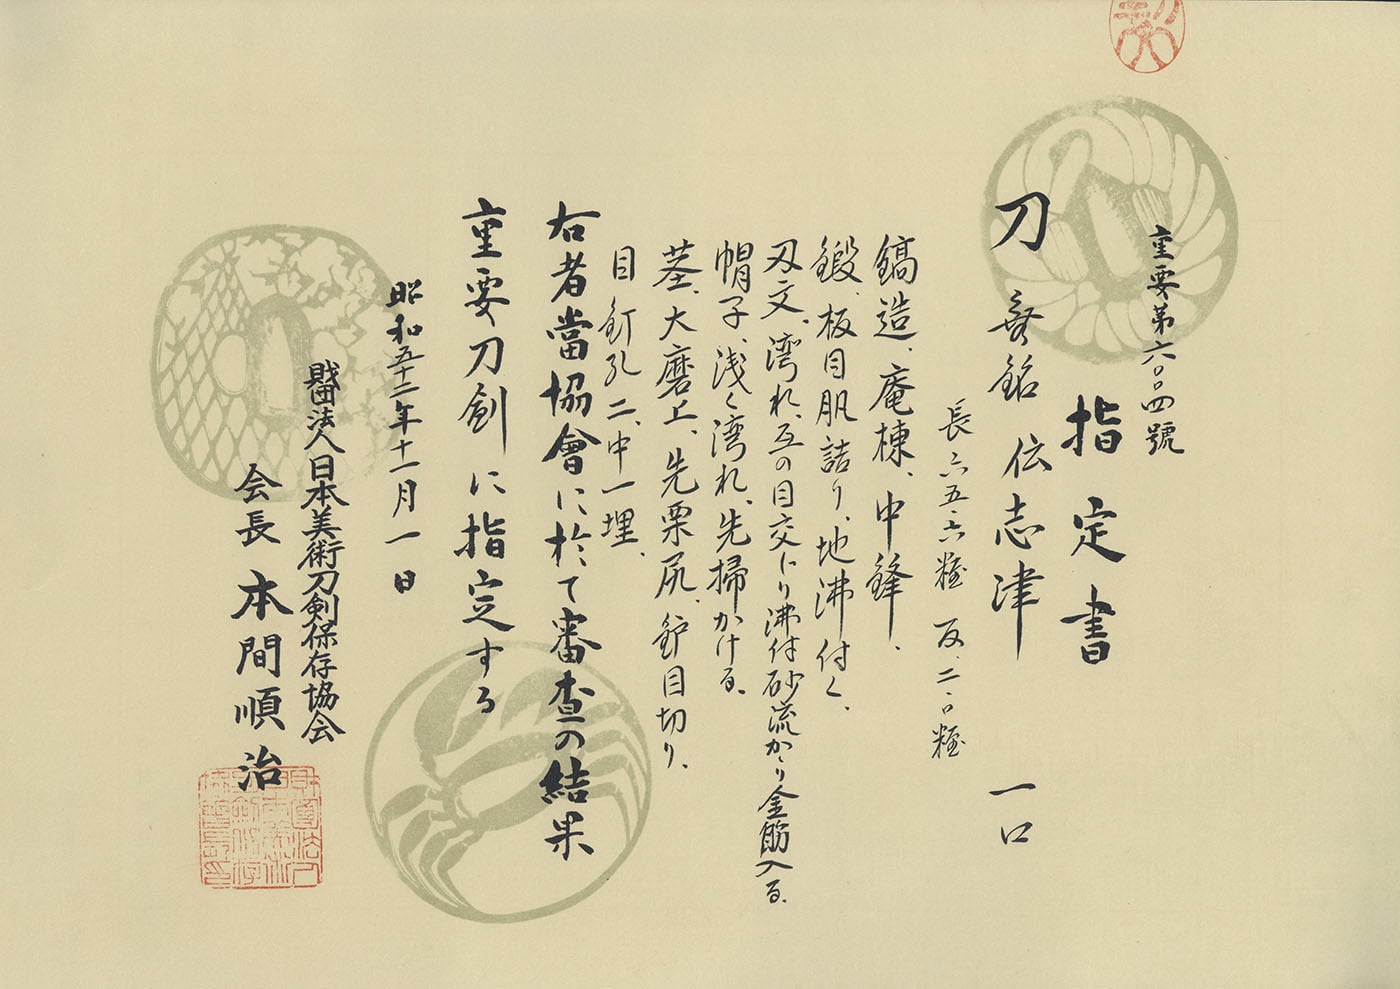 重要第六〇〇四號
指定書
刀 無銘 伝志津 一口
長 六五・六糎 反、二・〇糎
鎬造、庵棟、中鋒、
鍛、板目肌詰り、地沸付く、
刃文、湾れ、互の目交じり沸付砂流かゝり金筋入る、
帽子、浅く湾れ、先掃かける、
茎、大磨上、先栗尻、鈩目切り、
目釘孔二、中一埋、
右者當協會に於て審査の結果
重要刀剣に指定する
昭和五十二年十一月一日
財団法人日本美術刀剣保存協会
会長 本間順治